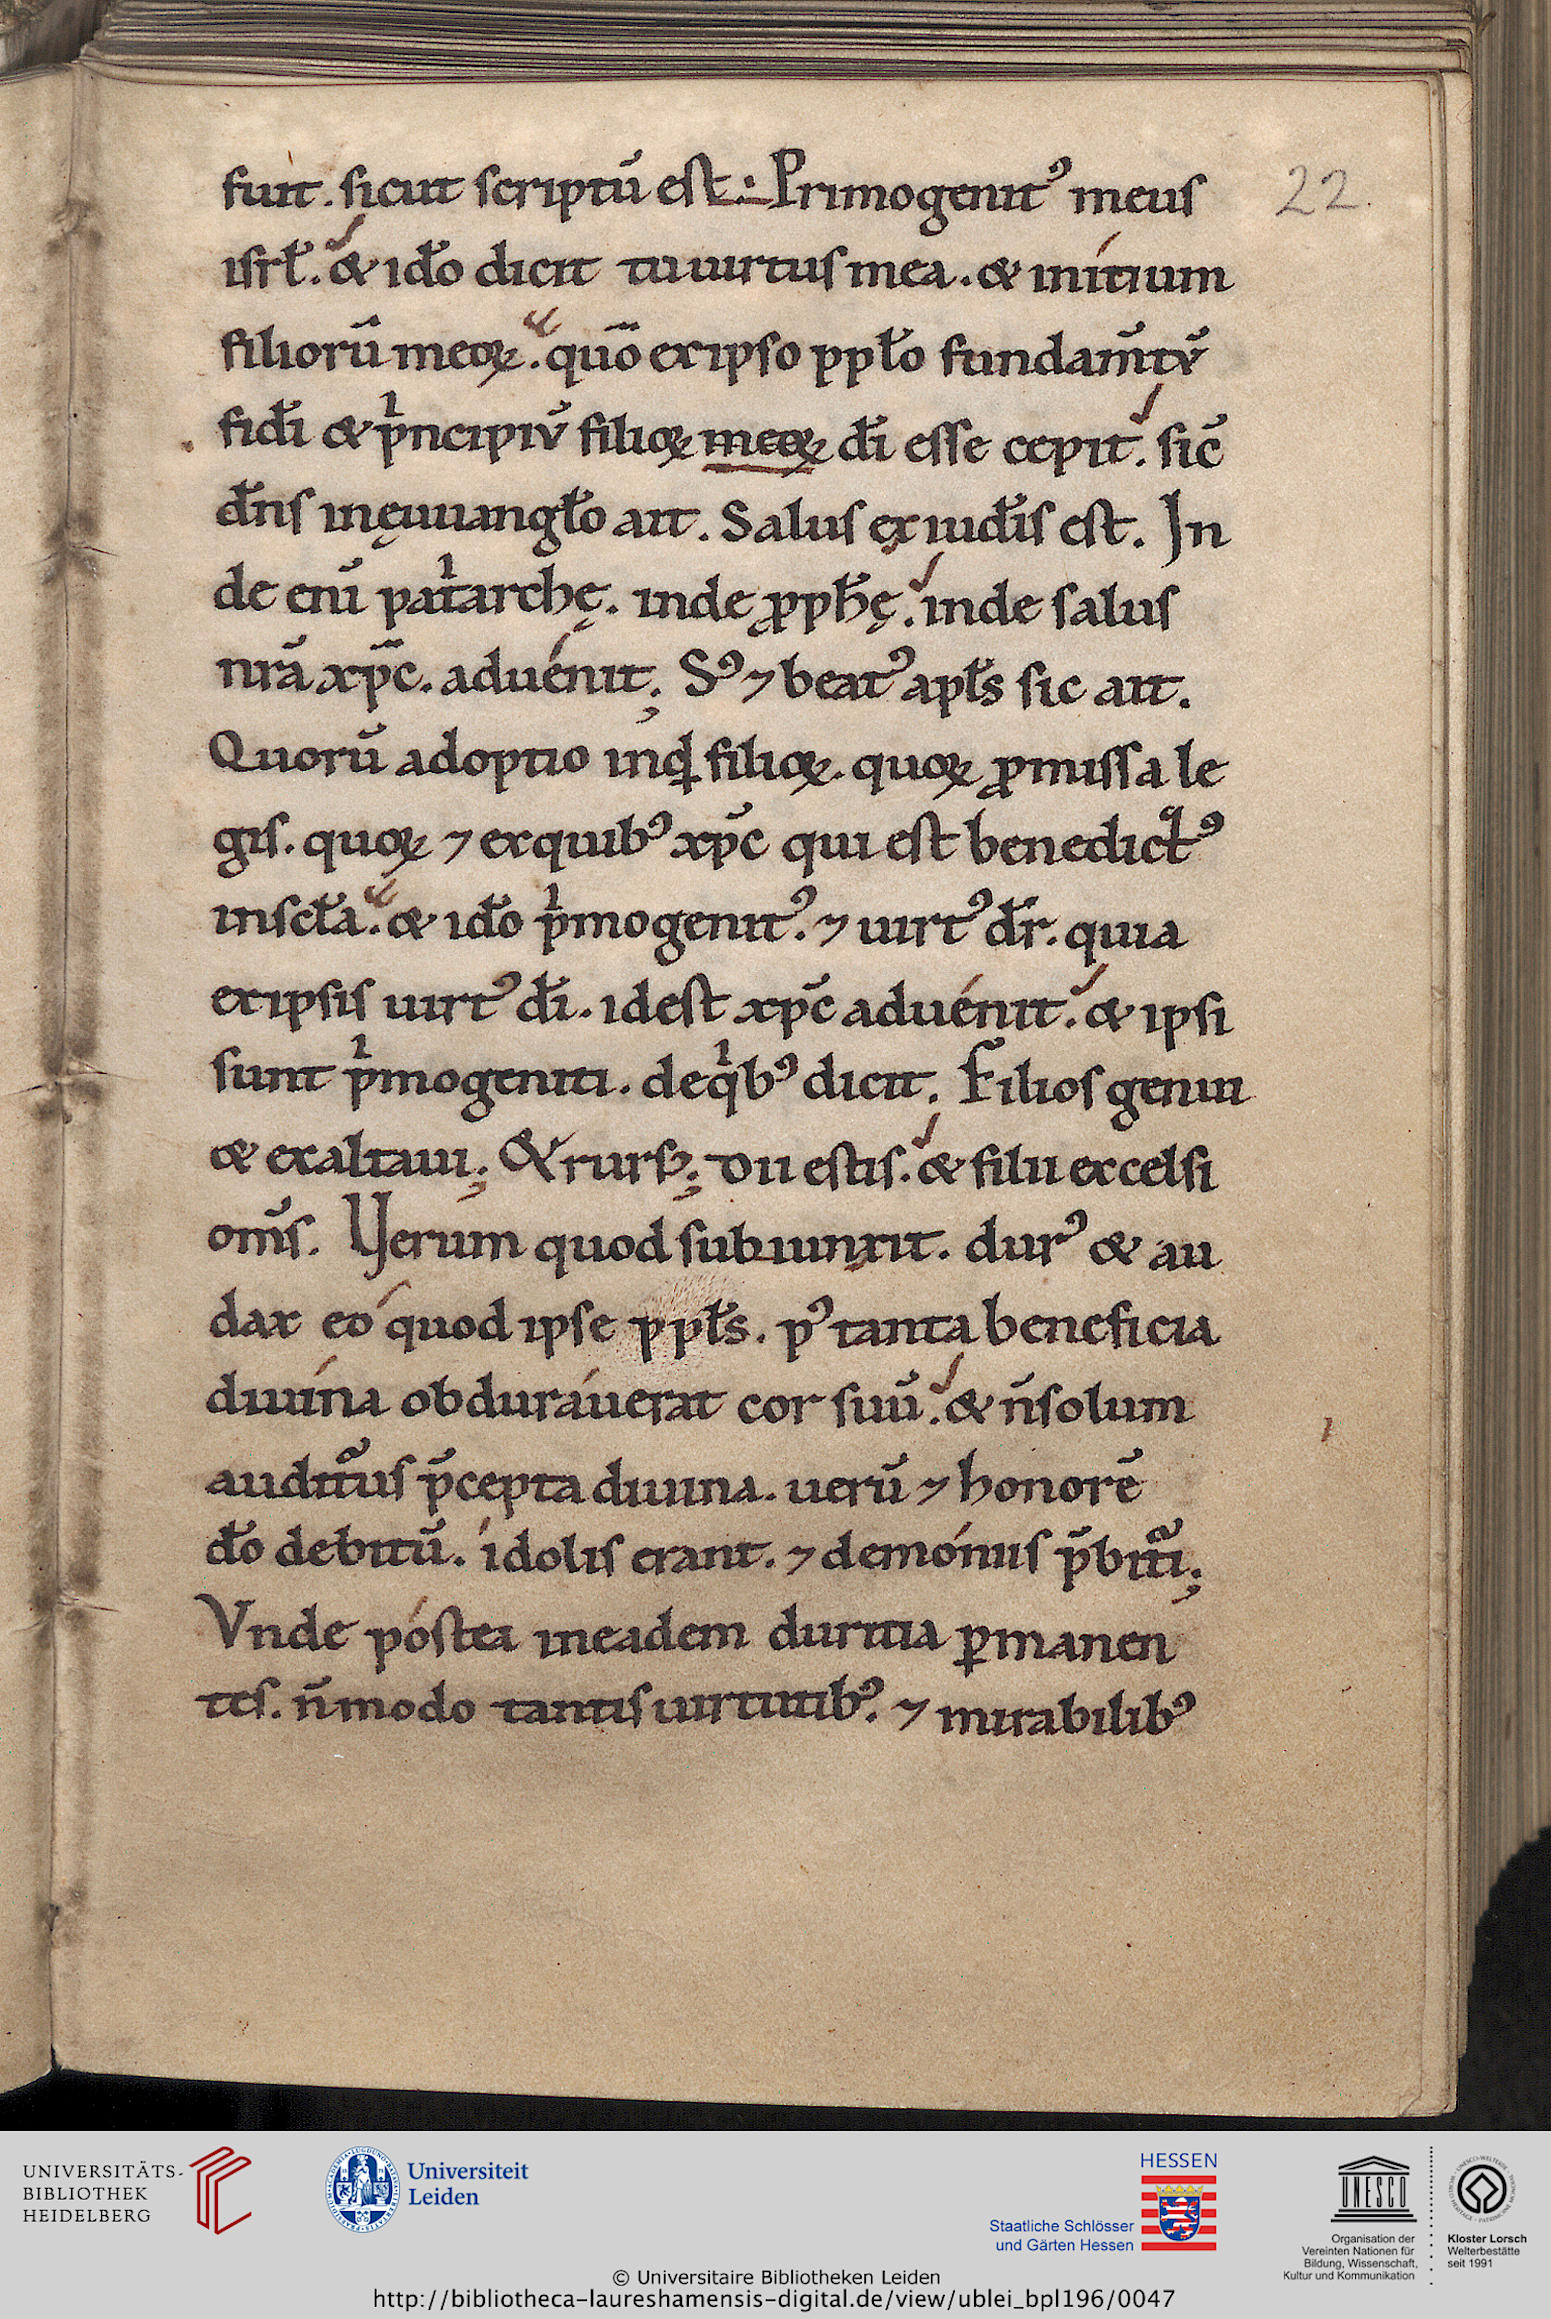 fuit. sicut scriptū est. Primogenitꝰ meus
22.
isrƚ. & idō dicit tu uirtus mea. & initium
filiorū meoꝝ. quō ex ipso ppƚo fundam̄tū
fidi̅ & pͥncipiū filioꝝ meoꝝ dī esse cepit. sic̄
dn̄s in ęuuangƚo ait. Salus ex iudīs est. In
de enī patͥarchę. inde ꝓph̄ę. inde salus
nrā xp̄c. aduénit; Sꝰ ⁊ beatꝰ apƚs sic ait.
Quorū adoptio inqͥ filioꝝ. quoꝝ ꝓmissa le
gis. quoꝝ ⁊ ex quibꝰ xp̄c qui est benedictꝰ
in scƚa. & idō pͥmogenitꝰ. ⁊ uirtꝰ dr̄. quia
ex ipsis uirtꝰ dī. id est xp̄c aduénit. & ipsi
sunt pͥmogeniti. de qͥbꝰ dicit. Filios genui
& exaltaui; & rursꝫ; Dii estis. & filii excelsi
om̄s. Verum quod subiunxit. durꝰ & au
dax eó quod ipse ppƚs. pꝰ tanta beneficia
diuína obduráuerat cor suū. & n̄ solum
auditᷓus p̄cepta diuina. uerū ⁊ honorē
dō debitū. ídolis erant. ⁊ demóniis p̄bitᷓi;
Vnde póstea in eadem duritia ꝑmanen
tes. n̄ modo tantis uirtutibꝰ. ⁊ mirabilibꝰ
UNIVERSITÄTS-
BIBLIOTHEK
HEIDELBERG
Universiteit
Leiden
HESSEN
Staatliche Schlösser
und Gärten Hessen
UNESCO
Organisation der
Vereinten Nationen für
Bildung, Wissenschaft,
Kultur und Kommunikation
Kloster Lorsch
Welterbestätte
seit 1991
© Universitaire Bibliotheken Leiden
http://bibliotheca-laureshamensis-digital.de/view/ublei_bpl196/0047